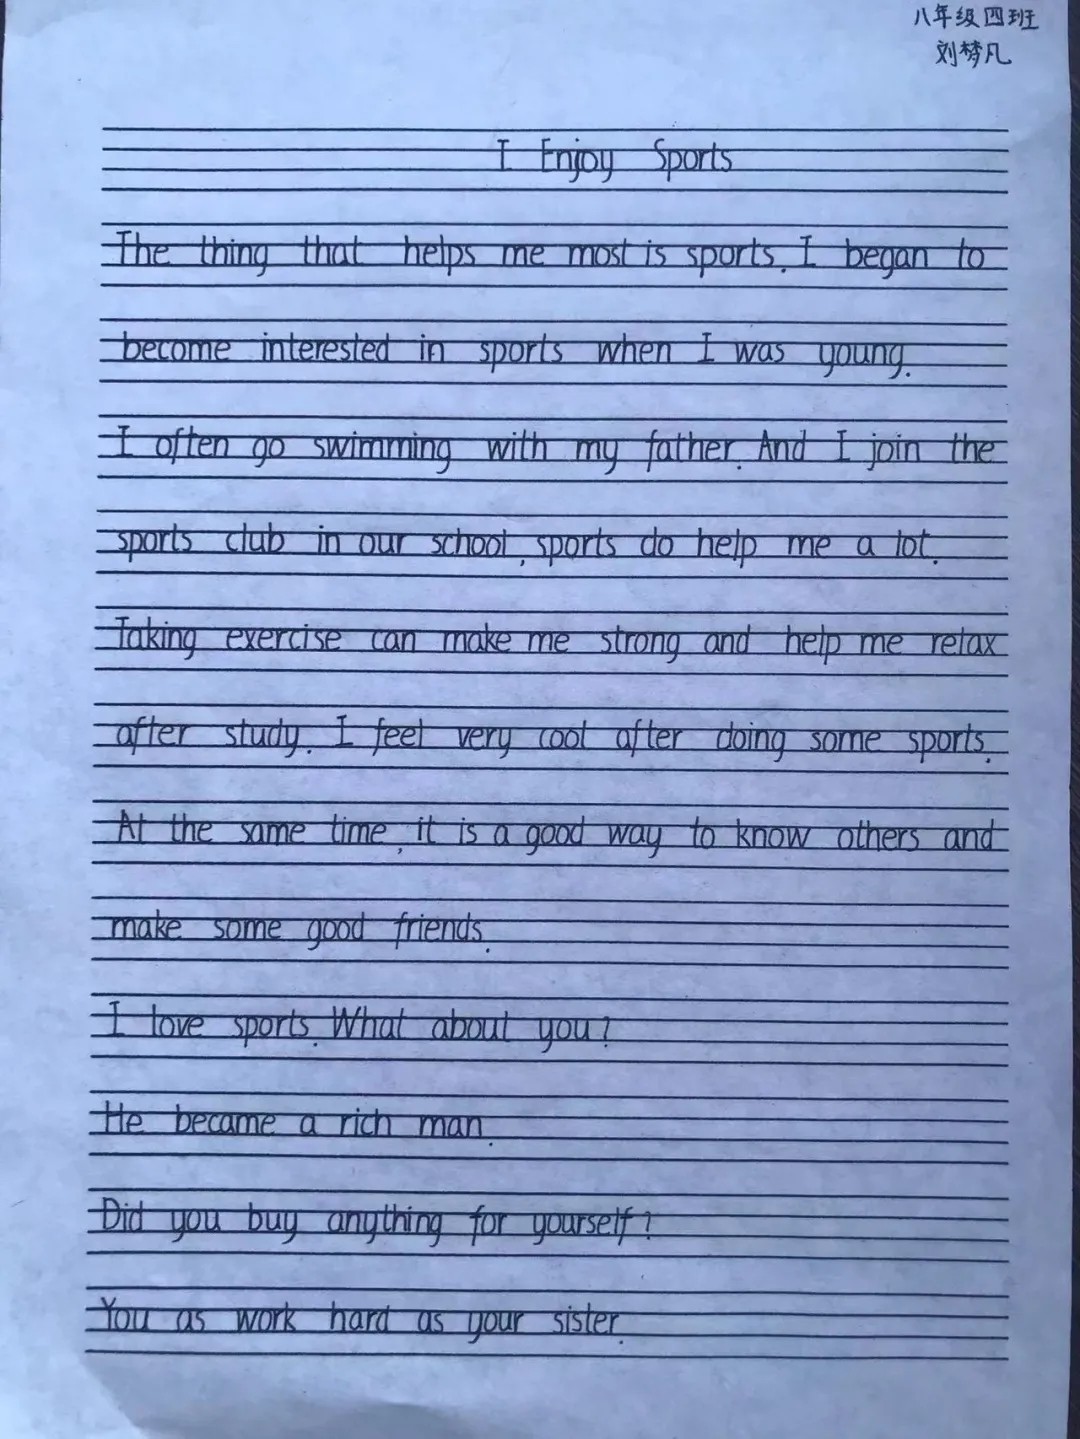 八年级四班
刘梦凡
I Enjoy Sports
The thing that helps me most is sports. I began to
become interested in sports when I was young.
I often go swimming with my father. And I join the
sports club in our school, sports do help me a lot.
Taking exercise can make me strong and help me relax
after study. I feel very cool after doing some sports.
At the same time, it is a good way to know others and
make some good friends.
I love sports. What about you?
He became a rich man.
Did you buy anything for yourself?
You as work hard as your sister.